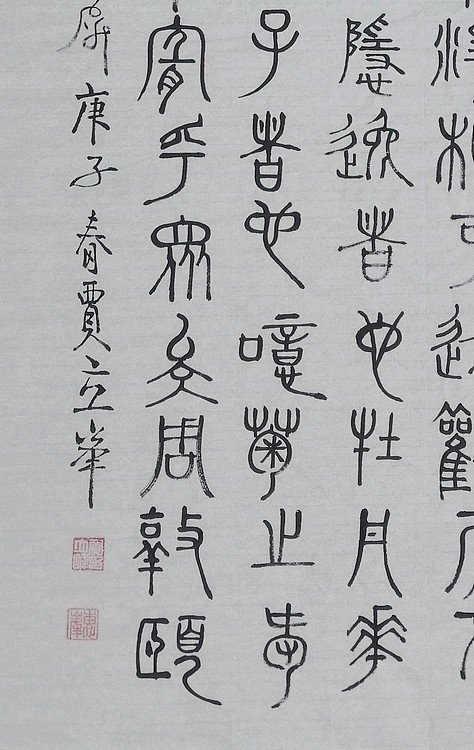 淨植可遠觀而不
隱逸者也牡丹華
子者也噫菊之愛
宜乎眾矣周敦頤
庚子春賈立峯